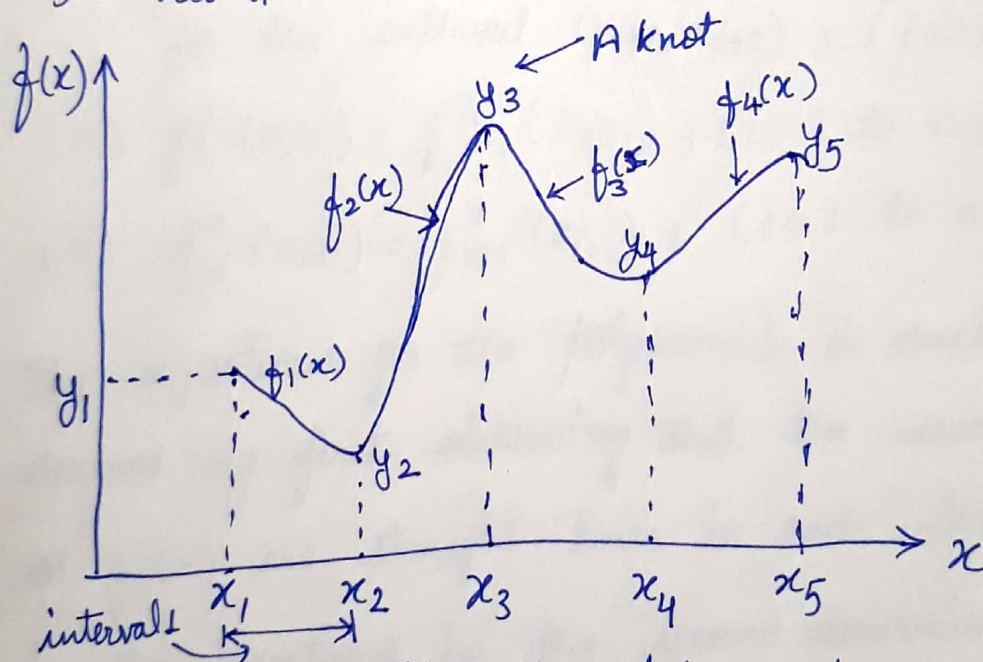 f(x)
A knot
y3
f4(x)
y5
f2(x)
f3(x)
y4
y1
f1(x)
y2
x1 x2 x3 x4 x5 x
interval 1